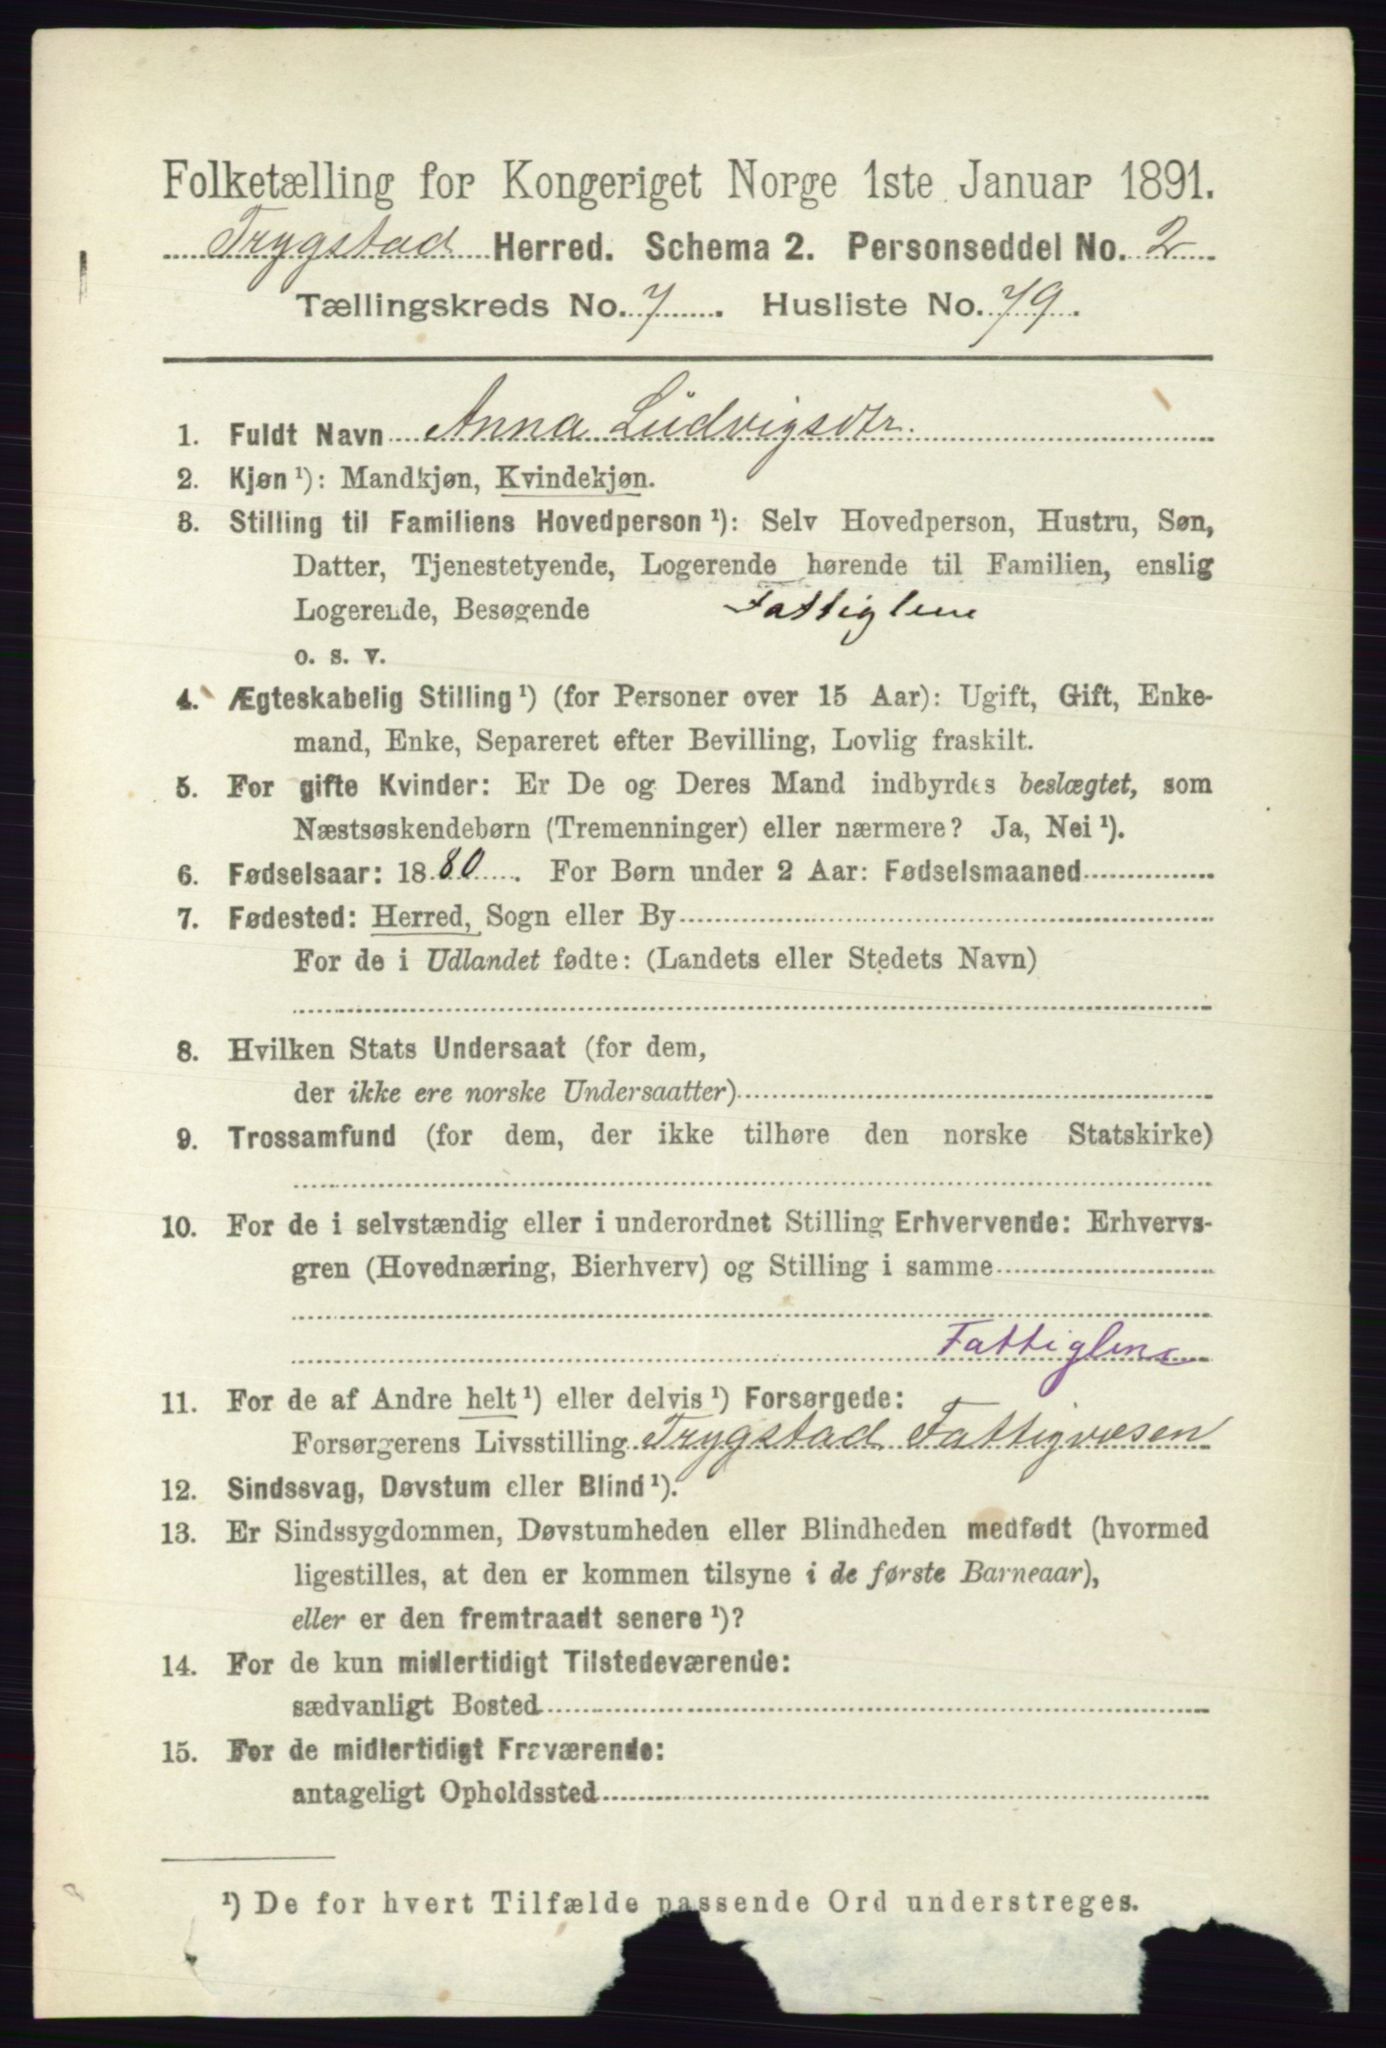 Folketælling for Kongeriget Norge 1ste Januar 1891.
Trygstad Herred. Schema 2. Personseddel No. 2
Tællingskreds No. 7. Husliste No. 79.
1. Fuldt Navn Anna Ludvigsdtr.
2. Kjøn ¹): Mandkjøn, Kvindekjøn.
3. Stilling til Familiens Hovedperson ¹): Selv Hovedperson, Hustru, Søn,
Datter, Tjenestetyende, Logerende hørende til Familien, enslig
Logerende, Besøgende Fattiglem
o. s. v.
4. Ægteskabelig Stilling ¹) (for Personer over 15 Aar): Ugift, Gift, Enke-
mand, Enke, Separeret efter Bevilling, Lovlig fraskilt.
5. For gifte Kvinder: Er De og Deres Mand indbyrdes beslægtet, som
Næstsøskendebørn (Tremenninger) eller nærmere? Ja, Nei ¹).
6. Fødselsaar: 1880. For Børn under 2 Aar: Fødselsmaaned
7. Fødested: Herred, Sogn eller By
For de i Udlandet fødte: (Landets eller Stedets Navn)
8. Hvilken Stats Undersaat (for dem,
der ikke ere norske Undersaatter)
9. Trossamfund (for dem, der ikke tilhøre den norske Statskirke)
10. For de i selvstændig eller i underordnet Stilling Erhvervende: Erhvervs-
gren (Hovednæring, Bierhverv) og Stilling i samme
Fattiglem
11. For de af Andre helt ¹) eller delvis ¹) Forsørgede:
Forsørgerens Livsstilling Trygstad Fattigvæsen
12. Sindssvag, Døvstum eller Blind ¹).
13. Er Sindssygdommen, Døvstumheden eller Blindheden medfødt (hvormed
ligestilles, at den er kommen tilsyne i de første Barneaar),
eller er den fremtraadt senere ¹)?
14. For de kun midlertidigt Tilstedeværende:
sædvanligt Bosted
15. For de midlertidigt Fraværende:
antageligt Opholdssted
¹) De for hvert Tilfælde passende Ord understreges.